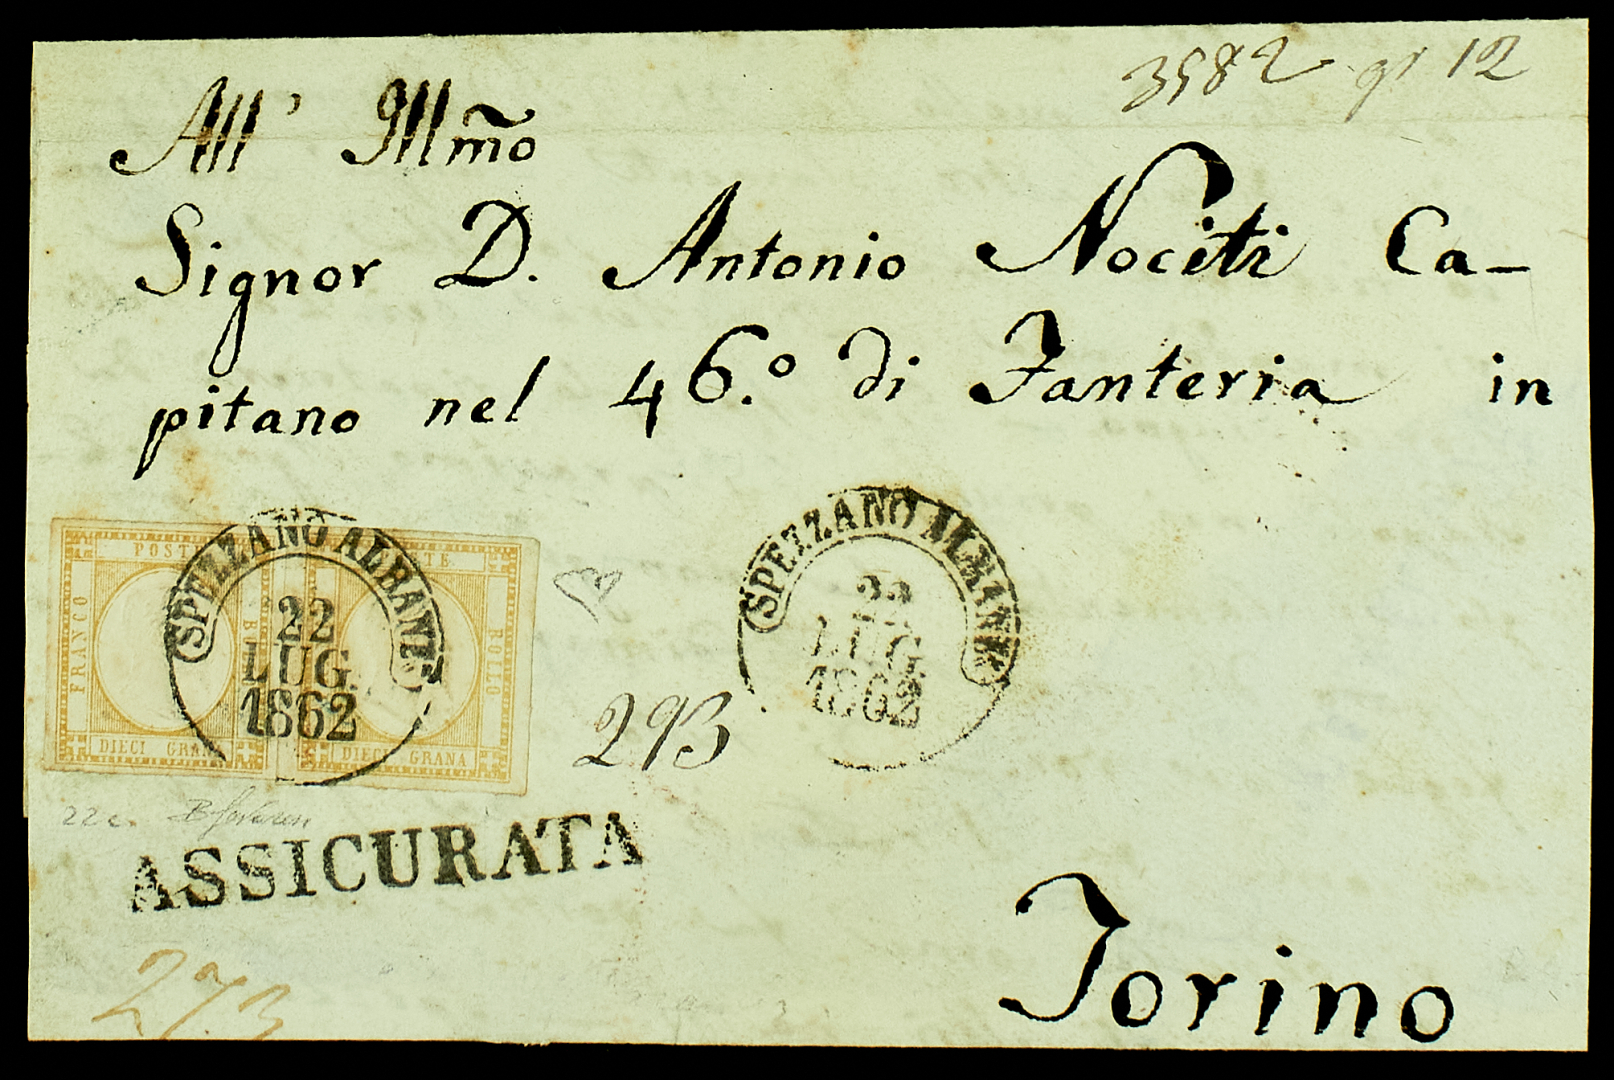 3582 gr 12
All' Illm̃o
Signor D. Antonio Nociti Ca-
pitano nel 46.º di Fanteria in
SPEZZANO ALBANESE
22
LUG
1862
SPEZZANO ALBANESE
22
LUG
1862
POSTE
FRANCO
BO
DIECI GRANA
TE
BOLLO
DIECI GRANA
293
22 c.
ASSICURATA
273
Torino